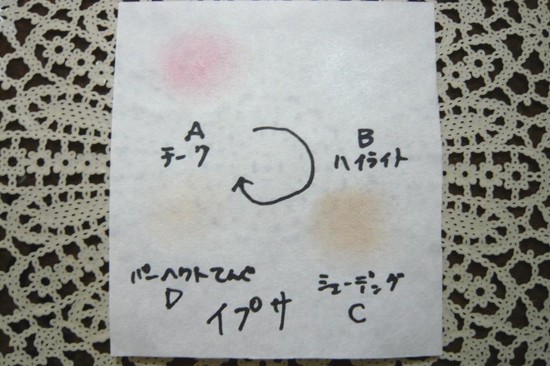 A
チーク
B
ハイライト
パーヘクト
D
シェーディング
C
イプサ